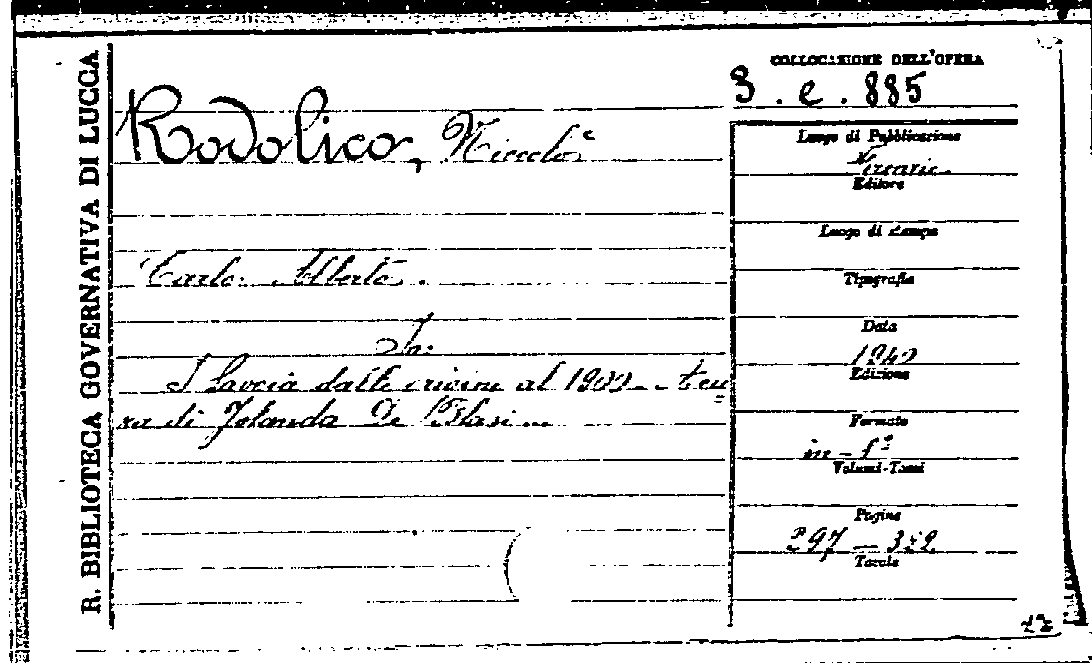 R. BIBLIOTECA GOVERNATIVA DI LUCCA
COLLOCAZIONE DELL'OPERA
3. e. 885
Rodolico, Niccolò
Carlo Alberto.
In:
I Savoia dalle origini al 1900 - A cu=
ra di Jolanda De Blasi...
Luogo di Pubblicazione
Firenze.
Editore
Luogo di stampa
Tipografia
Data
1940
Edizione
Formato
in-f°
Volumi-Tomi
Pagine
297
Tavole